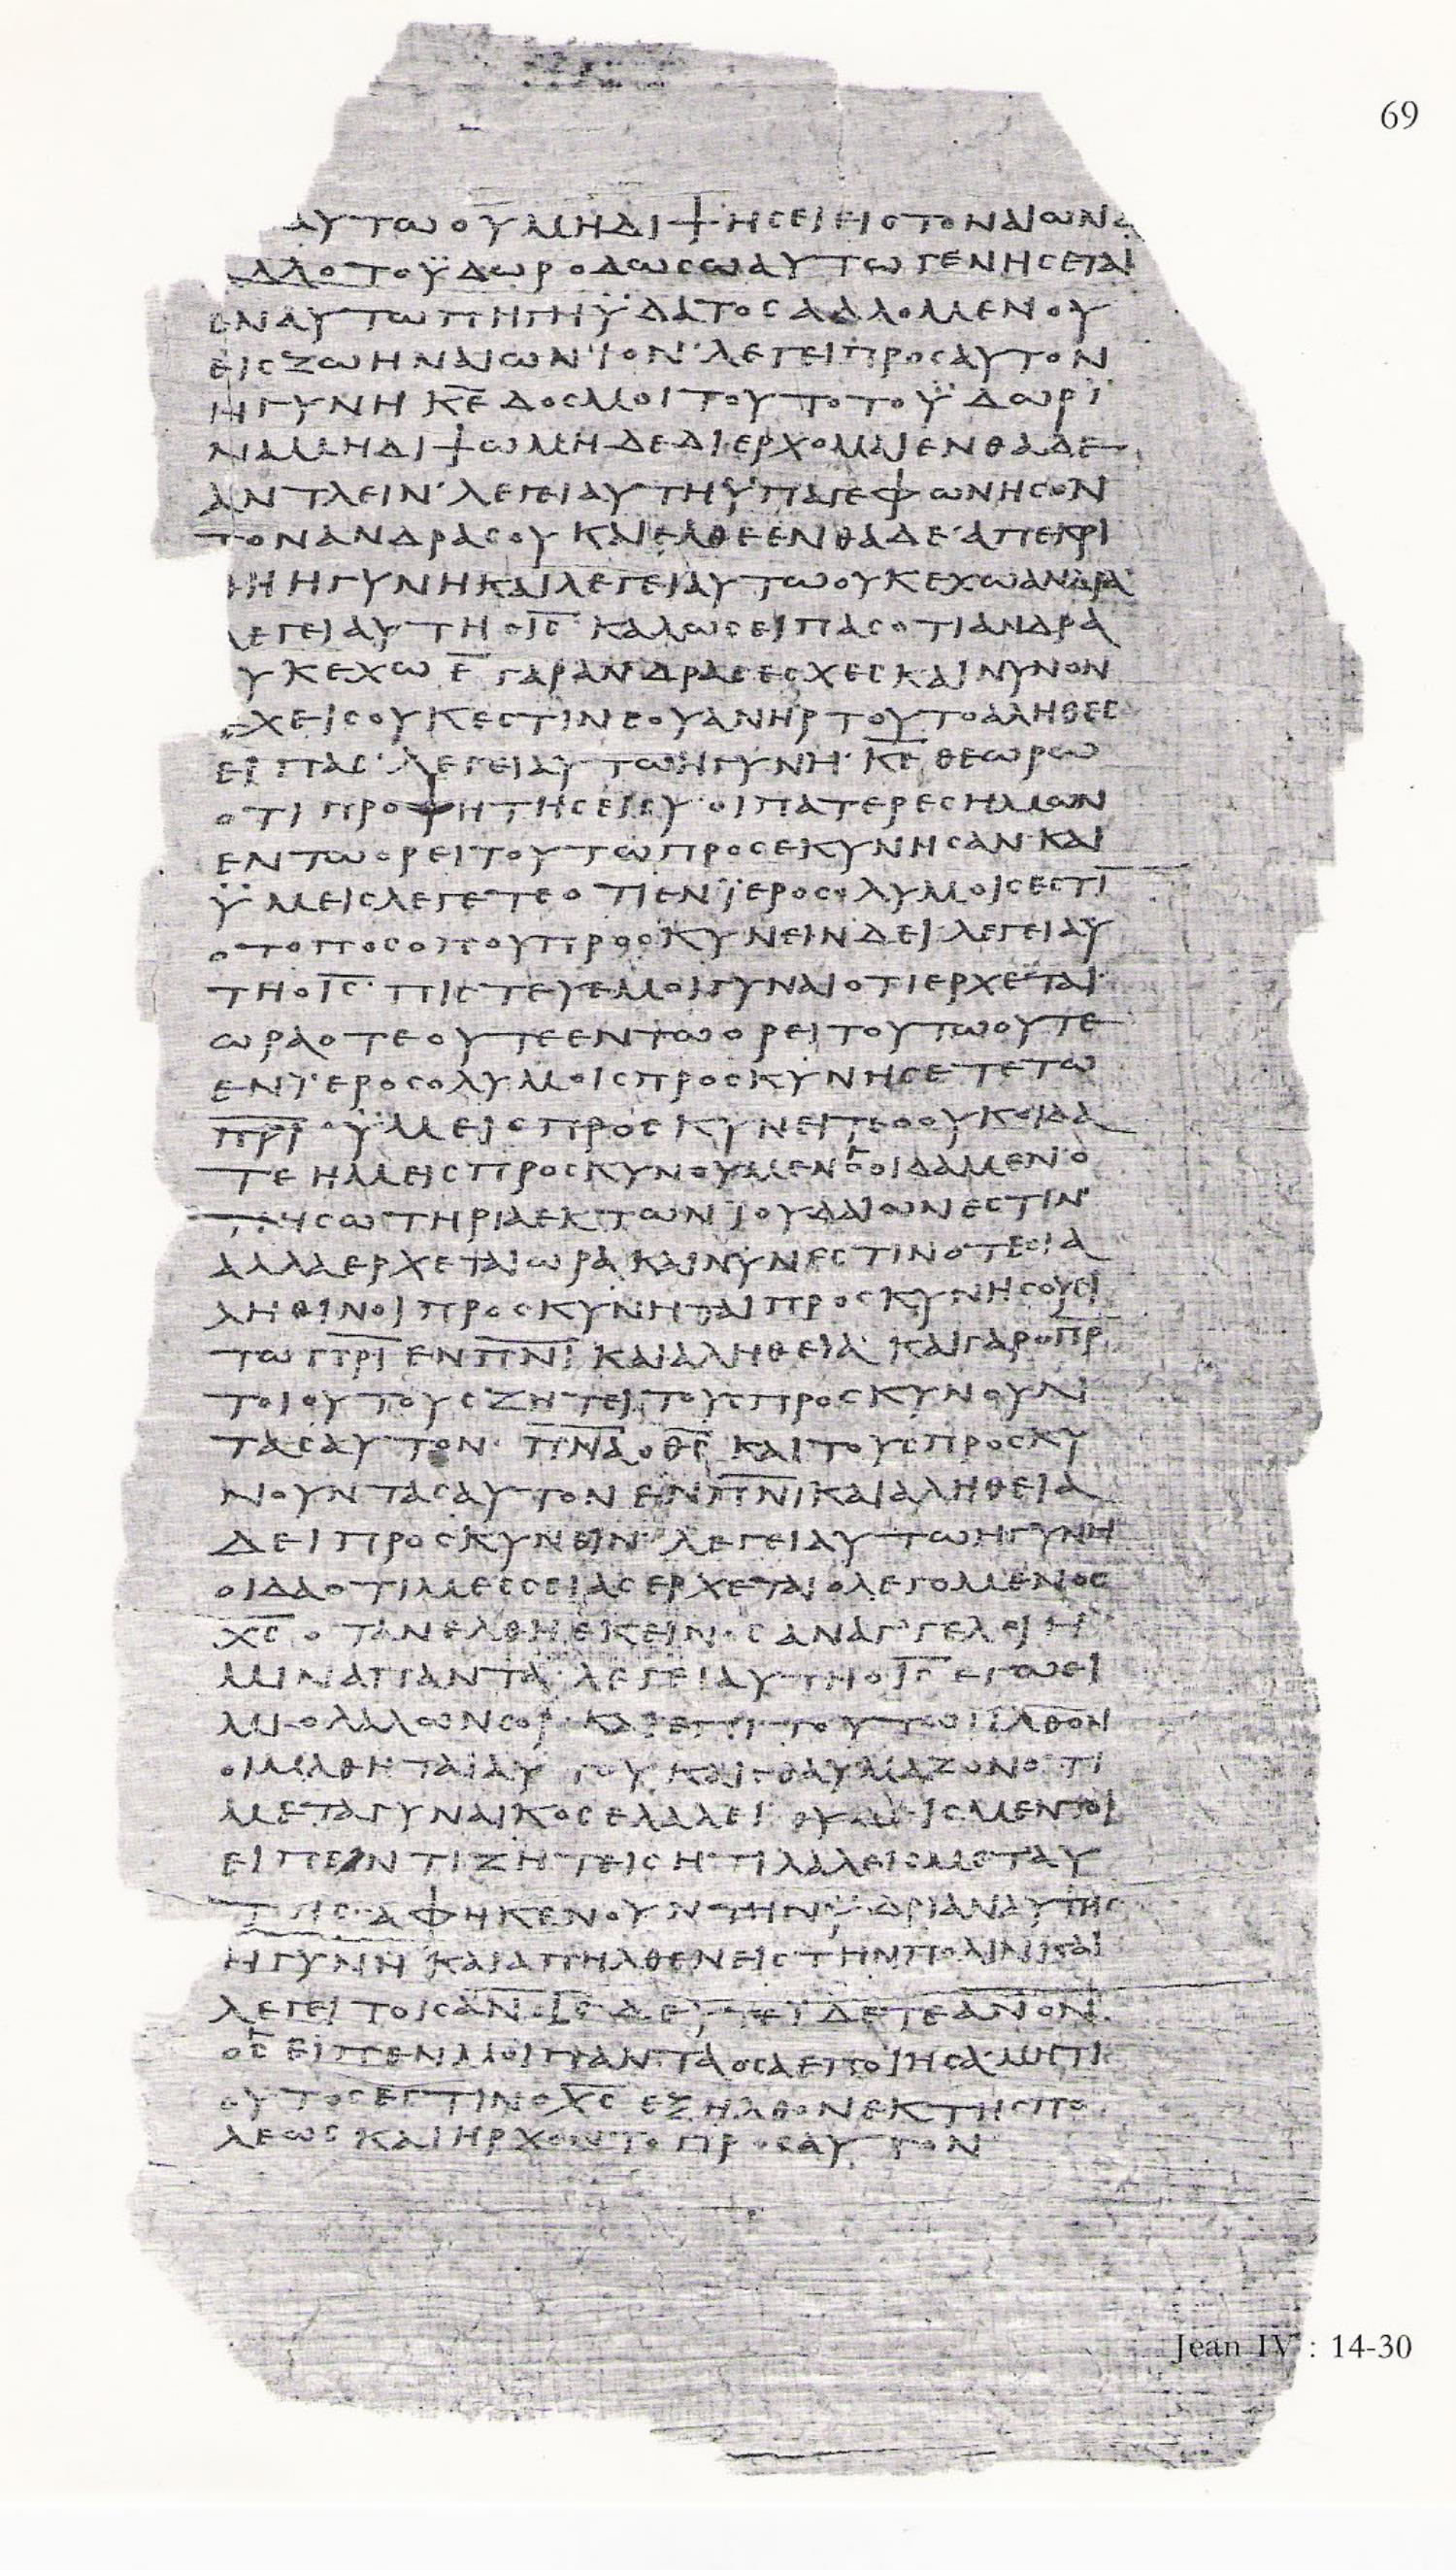 69
ΑΥΤΩΟΥΜΗΔΙΨΗΣΕΙΕΙΣΤΟΝΑΙΩΝΑ
ΑΛΛΟΤΟΫΔΩΡΟΔΩΣΩΑΥΤΩΓΕΝΗΣΕΤΑΙ
ΕΝΑΥΤΩΠΗΓΗΫΔΑΤΟΣΑΛΛΟΜΕΝΟΥ
ΕΙΣΖΩΗΝΑΙΩΝΙΟΝ·ΛΕΓΕΙΠΡΟΣΑΥΤΟΝ
ΗΓΥΝΗΚ̅Ε̅ΔΟΣΜΟΙΤΟΥΤΟΤΟΫΔΩΡΪ
ΝΑΜΗΔΙΨΩΜΗΔΕΔΙΕΡΧΟΜΑΙΕΝΘΑΔΕ
ΑΝΤΛΕΙΝ·ΛΕΓΕΙΑΥΤΗΫΠΑΓΕΦΩΝΗΣΟΝ
ΤΟΝΑΝΔΡΑΣΟΥΚΑΙΕΛΘΕΕΝΘΑΔΕ·ΑΠΕΚΡΙ
ΘΗΗΓΥΝΗΚΑΙΛΕΓΕΙΑΥΤΩΟΥΚΕΧΩΑΝΔΡΑ·
ΛΕΓΕΙΑΥΤΗΟΙ̅Σ̅ΚΑΛΩΣΕΙΠΑΣΟΤΙΑΝΔΡΑ
ΥΚΕΧΩΕ̅ΓΑΡΑΝΔΡΑΣΕΣΧΕΣΚΑΙΝΥΝΟΝ
ΕΧΕΙΣΟΥΚΕΣΤΙΝΣΟΥΑΝΗΡΤΟΥΤΟΑΛΗΘΕΣ
ΕΙΠΑΣ·ΛΕΓΕΙΑΥΤΩΗΓΥΝΗ·Κ̅Ε̅ΘΕΩΡΩ
ΟΤΙΠΡΟΦΗΤΗΣΕΙΣΥ·ΟΙΠΑΤΕΡΕΣΗΜΩΝ
ΕΝΤΩΟΡΕΙΤΟΥΤΩΠΡΟΣΕΚΥΝΗΣΑΝ·ΚΑΙ
ΫΜΕΙΣΛΕΓΕΤΕΟΤΙΕΝΪΕΡΟΣΟΛΥΜΟΙΣΕΣΤΙ
ΟΤΟΠΟΣΟΠΟΥΠΡΟΣΚΥΝΕΙΝΔΕΙ·ΛΕΓΕΙΑΥ
ΤΗΟΙ̅Σ̅·ΠΙΣΤΕΥΕΜΟΙΓΥΝΑΙΟΤΙΕΡΧΕΤΑΙ
ΩΡΑΟΤΕΟΥΤΕΕΝΤΩΟΡΕΙΤΟΥΤΩΟΥΤΕ
ΕΝΪΕΡΟΣΟΛΥΜΟΙΣΠΡΟΣΚΥΝΗΣΕΤΕΤΩ
Π̅Ρ̅Ι̅·ΫΜΕΙΣΠΡΟΣΚΥΝΕΙΤΕΟΟΥΚΟΙΔΑ
ΤΕΗΜΕΙΣΠΡΟΣΚΥΝΟΥΜΕΝΟΟΙΔΑΜΕΝ·Ο
ΤΙΗΣΩΤΗΡΙΑΕΚΤΩΝΪΟΥΔΑΙΩΝΕΣΤΙΝ·
ΑΛΛΑΕΡΧΕΤΑΙΩΡΑΚΑΙΝΥΝΕΣΤΙΝΟΤΕΟΙΑ
ΛΗΘΙΝΟΙΠΡΟΣΚΥΝΗΤΑΙΠΡΟΣΚΥΝΗΣΟΥΣΙ
ΤΩΠ̅Ρ̅Ι̅ΕΝΠ̅Ν̅Ι̅ΚΑΙΑΛΗΘΕΙΑ·ΚΑΙΓΑΡΟΠ̅Ρ̅
ΤΟΙΟΥΤΟΥΣΖΗΤΕΙΤΟΥΣΠΡΟΣΚΥΝΟΥΝ
ΤΑΣΑΥΤΟΝ·Π̅Ν̅Α̅ΟΘ̅Σ̅ΚΑΙΤΟΥΣΠΡΟΣΚΥ
ΝΟΥΝΤΑΣΑΥΤΟΝΕΝΠ̅Ν̅Ι̅ΚΑΙΑΛΗΘΕΙΑ
ΔΕΙΠΡΟΣΚΥΝΕΙΝ·ΛΕΓΕΙΑΥΤΩΗΓΥΝΗ
ΟΙΔΑΟΤΙΜΕΣΣΕΙΑΣΕΡΧΕΤΑΙΟΛΕΓΟΜΕΝΟΣ
Χ̅Σ̅ΟΤΑΝΕΛΘΗΕΚΕΙΝΟΣΑΝΑΓ᾽ΓΕΛΕΙΗ
ΜΙΝΑΠΑΝΤΑ·ΛΕΓΕΙΑΥΤΗΟΙ̅Σ̅ΕΓΩΕΙ
ΜΙΟΛΑΛΩΝΣΟΙ·ΚΑΙΕΠΙΤΟΥΤΩΗΛΘΟΝ
ΟΙΜΑΘΗΤΑΙΑΥΤΟΥΚΑΙΕΘΑΥΜΑΖΟΝΟΤΙ
ΜΕΤΑΓΥΝΑΙΚΟΣΕΛΑΛΕΙ·ΟΥΔΕΙΣΜΕΝΤΟΙ
ΕΙΠΕΝΤΙΖΗΤΕΙΣΗΤΙΛΑΛΕΙΣΜΕΤΑΥ
ΤΗΣ·ΑΦΗΚΕΝΟΥΝΤΗΝΫΔΡΙΑΝΑΥΤΗΣ
ΗΓΥΝΗΚΑΙΑΠΗΛΘΕΝΕΙΣΤΗΝΠΟΛΙΝΚΑΙ
ΛΕΓΕΙΤΟΙΣΑ̅Ν̅Ο̅Ι̅Σ̅ΔΕΥΤΕΪΔΕΤΕΑ̅Ν̅Ο̅Ν̅
ΟΣΕΙΠΕΝΜΟΙΠΑΝΤΑΟΣΑΕΠΟΙΗΣΑ·ΜΗΤΙ
ΟΥΤΟΣΕΣΤΙΝΟΧ̅Σ̅ΕΞΗΛΘΟΝΕΚΤΗΣΠΟ
ΛΕΩΣΚΑΙΗΡΧΟΝΤΟΠΡΟΣΑΥΤΟΝ
Jean IV : 14-30